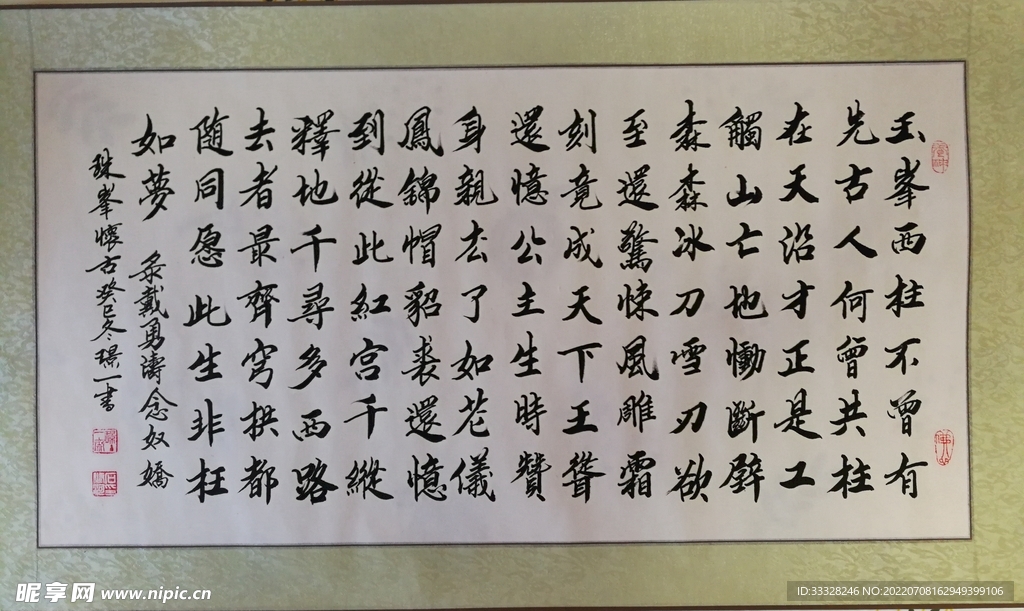 玉峯西柱不曾有
先古人何曾共柱
在天沿才正是工
觸山亡地慟斷壁
森森冰刀雪刃欲
至還驚悚風雕霜
刻竟成天下王聳
還憶公主生時贊
身親去了如花儀
鳳錦帽貂裘還憶
到從此紅宮千縱
釋地千尋多西路
去者最齊穹拱都
随同愿此生非枉
如夢
录戴勇濤念奴嬌
珠峯懷古癸巳冬璟一書
昵享网 www.nipic.cn
ID:33328246 NO:20220708162949399106